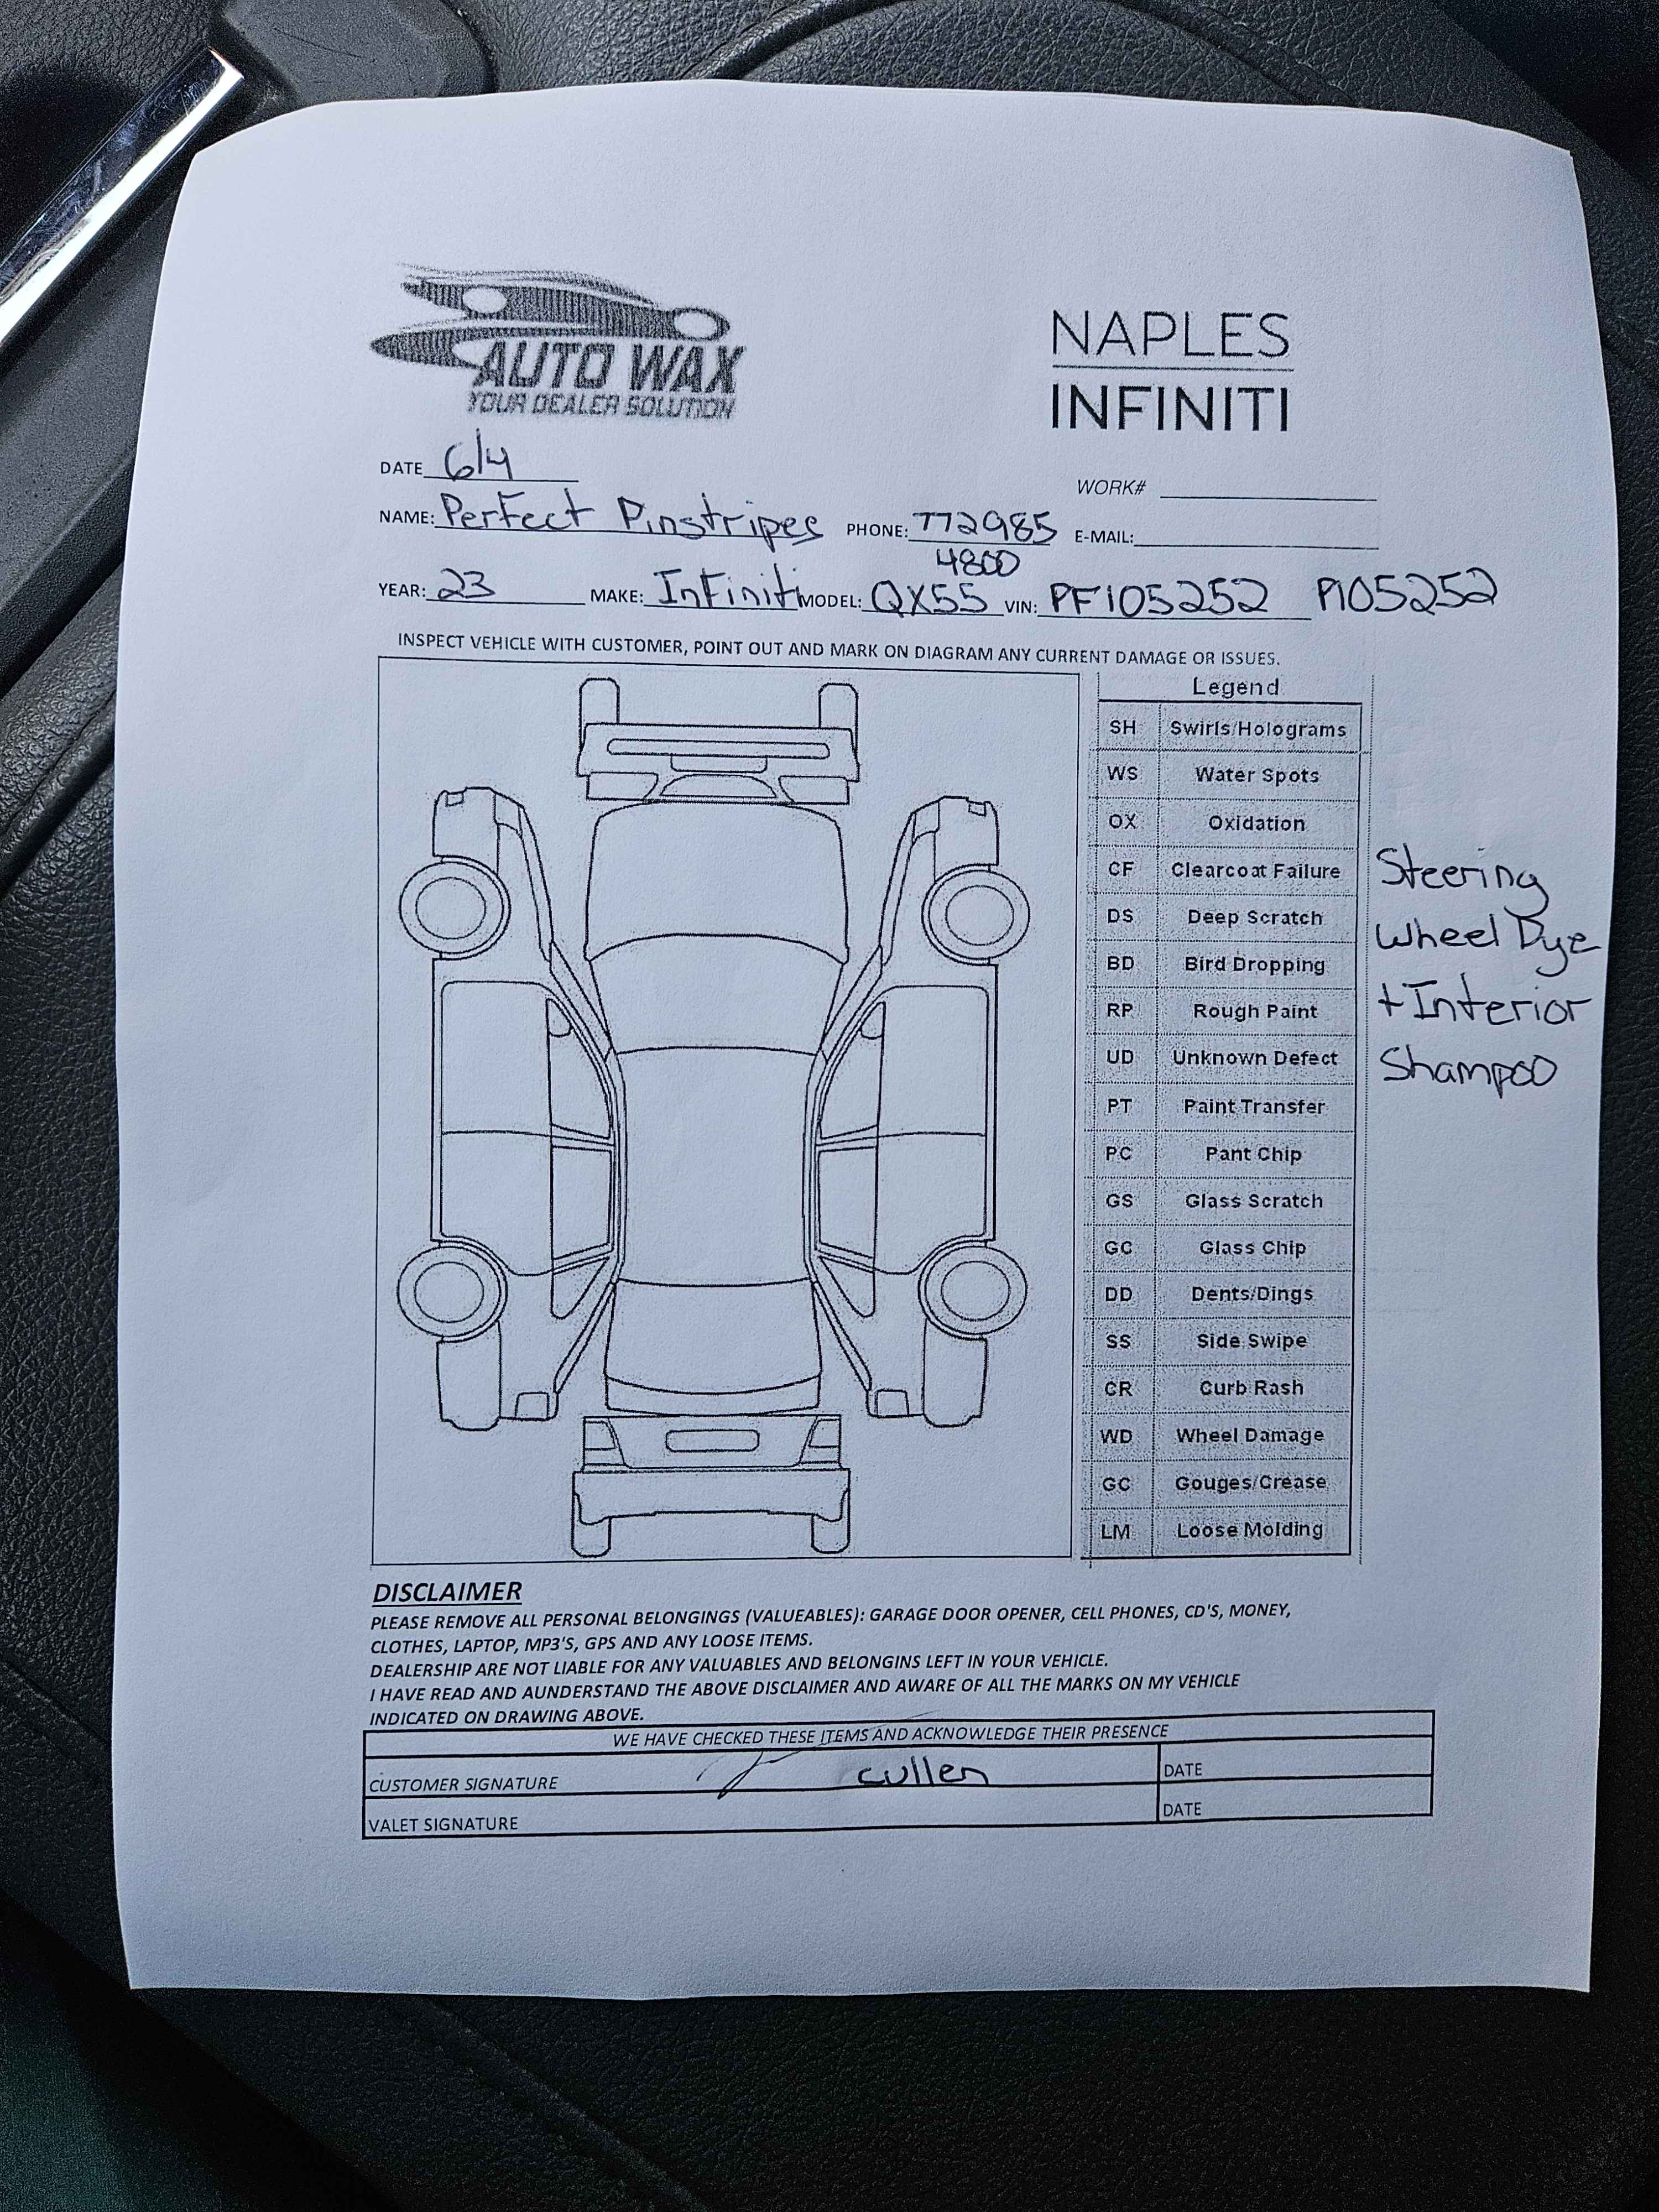 AUTO WAX
YOUR DEALER SOLUTION
NAPLES
INFINITI
DATE 6/4
WORK#
NAME: Perfect Pinstripes PHONE: 772985 E-MAIL:
4800
YEAR: 23 MAKE: Infiniti MODEL: QX55 VIN: PF105252 P105252
INSPECT VEHICLE WITH CUSTOMER, POINT OUT AND MARK ON DIAGRAM ANY CURRENT DAMAGE OR ISSUES.
Legend
SH Swirls/Holograms
WS Water Spots
OX Oxidation
CF Clearcoat Failure
DS Deep Scratch
BD Bird Dropping
RP Rough Paint
UD Unknown Defect
PT Paint Transfer
PC Pant Chip
GS Glass Scratch
GC Glass Chip
DD Dents/Dings
SS Side Swipe
CR Curb Rash
WD Wheel Damage
GC Gouges/Crease
LM Loose Molding
Steering
Wheel Dye
+ Interior
Shampoo
DISCLAIMER
PLEASE REMOVE ALL PERSONAL BELONGINGS (VALUEABLES): GARAGE DOOR OPENER, CELL PHONES, CD'S, MONEY,
CLOTHES, LAPTOP, MP3'S, GPS AND ANY LOOSE ITEMS.
DEALERSHIP ARE NOT LIABLE FOR ANY VALUABLES AND BELONGINS LEFT IN YOUR VEHICLE.
I HAVE READ AND AUNDERSTAND THE ABOVE DISCLAIMER AND AWARE OF ALL THE MARKS ON MY VEHICLE
INDICATED ON DRAWING ABOVE.
WE HAVE CHECKED THESE ITEMS AND ACKNOWLEDGE THEIR PRESENCE
CUSTOMER SIGNATURE cullen DATE
VALET SIGNATURE DATE